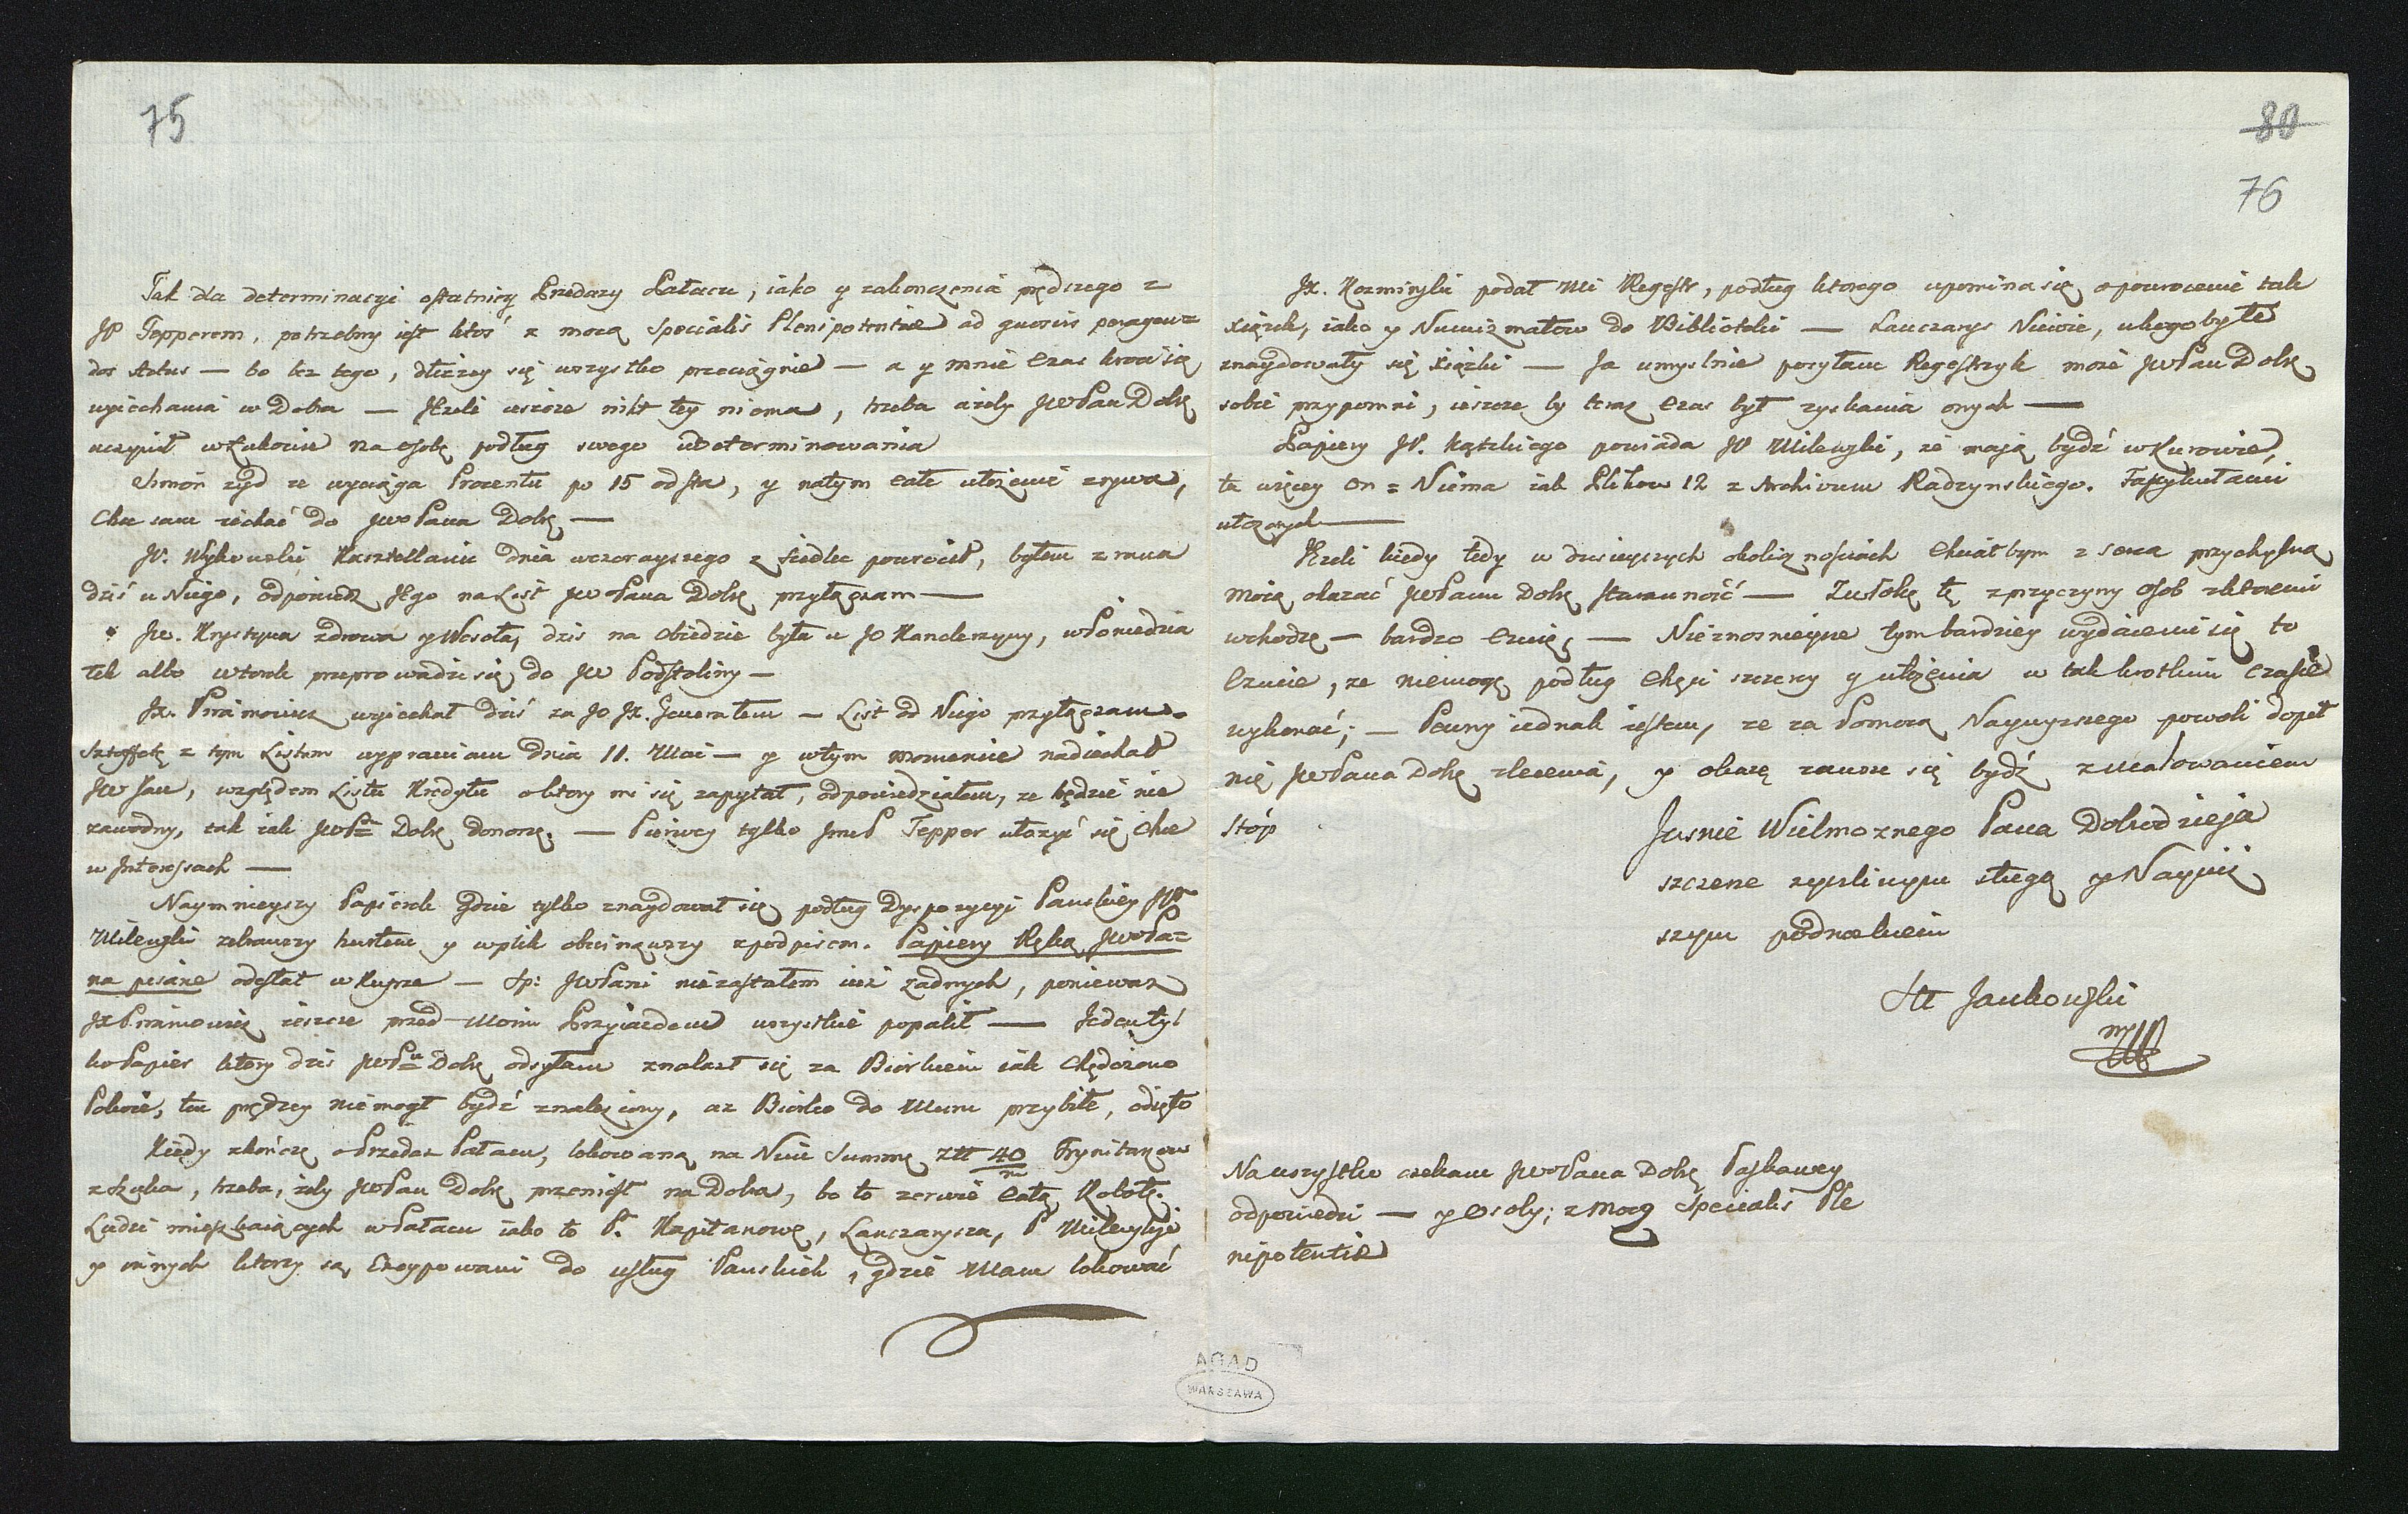 75
Tak dla determinacyi ostatniey Przedazy Pałacu, iako y zakonczenia prędszego z
JP Tepperem, potrzebny iest ktoś z mocą Specialis Plenipotentiae ad quosvis peragen=
dos Actus — bo bez tego, dłużey się wszystko przeciągnie — a y mnie Czas kroci się
wyiechania w Dobra — Jeżeli ieszcze nikt tey niema, trzeba ażeby JWPan Dobr
uczynił w Łukowie na osobę podług swego udeterminowania
Szmon żyd ze wyciąga Procentu po 15 od sta, y natym całe ułożenie zrywa,
Chce sam iechać do JWo Pana Dobr —
JP. Wykowski Kasztellanic dnia wczorayszego z Siedlec powrocił, byłem z rana
dziś u Niego, odpowiedz Jego na List JWo Pana Dobr przyłączam —
Jw. Krystyna zdrowa y Wesoła, dzis na obiedzie była u JO Kanclerzyny, w Poniedzia
łek albo wtorek przeprowadzi się do JW Podstoliny —
JX. Piramowicz wyiechał dziś za JO JX. Generałem — List od Niego przyłączam.
Sztaffetę z tym Listem wyprawiam dnia 11. Maii — y wtym momencie nadiechał
JWPan, względem Listu Kredytu o ktory mi się zapytał, odpowiedziałem, ze będzie nie
zawodny, tak iak JWPu Dobr donoszę. — Pierwey tylko JmcP Tepper ułozyć się chce
w Interessach —
Naymnieyszy Papierek gdzie tylko znaydował się podług Dyspozycyi Panskiey JP
Milewski zebrawszy hurtem y wplik obwinąwszy z podpisem. Papiery Ręką JWoPa=
na pisane odesłał w Kuprze — Sp: JWPani niezastałem iuż żadnych, poniewaz
JX Piramowicz ieszcze przed Moim Przyiazdem wszystkie popalił — Jeden tyl
ko Papier ktory dzis JWPu Dobr odsyłam znalazł się za Biorkiem iak Chędożono
Pokoie, ten prędzey niemogł bydź znaleziony, az Biorko do Muru przybite, odięto
Kiedy zkończę o Przedaz Pałacu, lokowaną na Nim Summę zł 40 m Trynitarzow
z Łuka, trzeba, żeby JWPan Dobr przeniosł na Dobra, bo to zerwie całą Robotę.
Ludzi mięszkaiących w Pałacu iako to P. Kapitanowę, Lanczarysza, P Milewskie
y innych ktorzy są Encypowani do usług Panskich, gdzie Mam lokować
80
76
JX. Kozminski podał Mi Regestr, podług ktorego upomina się o powrocenie tak
xiązek, iako y Numizmatow do Biblioteki — Lanczarys Niewie, u kogo by te
znaydowały się xiązki — Ja umyslnie posyłam Regestrzyk moze JWPan Dobr
sobie przypomni, ieszcze by teraz Czas był zyskania onych —
Papiery JP. Kątskiego powiada JP Milewski, ze maią bydź w Kurowie,
tu więcey on = Niema iak Plikow 12 z Archivum Radzynskiego. Faszykułami
ułozonych —
Jezeli kiedy tedy w dzisieyszych okolicznosciach chciałbym z serca przychylną
Moię okazać JWPanu Dobr staranność — Zwłokę tę z przyczyny Osob z ktoremi
wchodzę — bardzo Czuię, — Nieznosnieysze tym bardziey wydaiemi się to
Czucie, ze niemogę podług Chęci szczery y ułożenia w tak krotkim czasie
wykonać; — Pewny iednak iestem, ze za Pomocą Naywyzszego powoli dopeł
nię JWPana Dobr zlecenia, y okazę zawsze się bydź z ucałowaniem
Stóp
Jasnie Wielmoznego Pana Dobrodzieja
szczerze zyczliwym sługą y Nayniż
szym podnozkiem
St Jankowski
mp
Na wszystko czekam JWoPana Dobr łaskawey
odpowiedzi — y osoby; z Mocą Specialis Ple
nipotentiae
AGAD
WARSZAWA